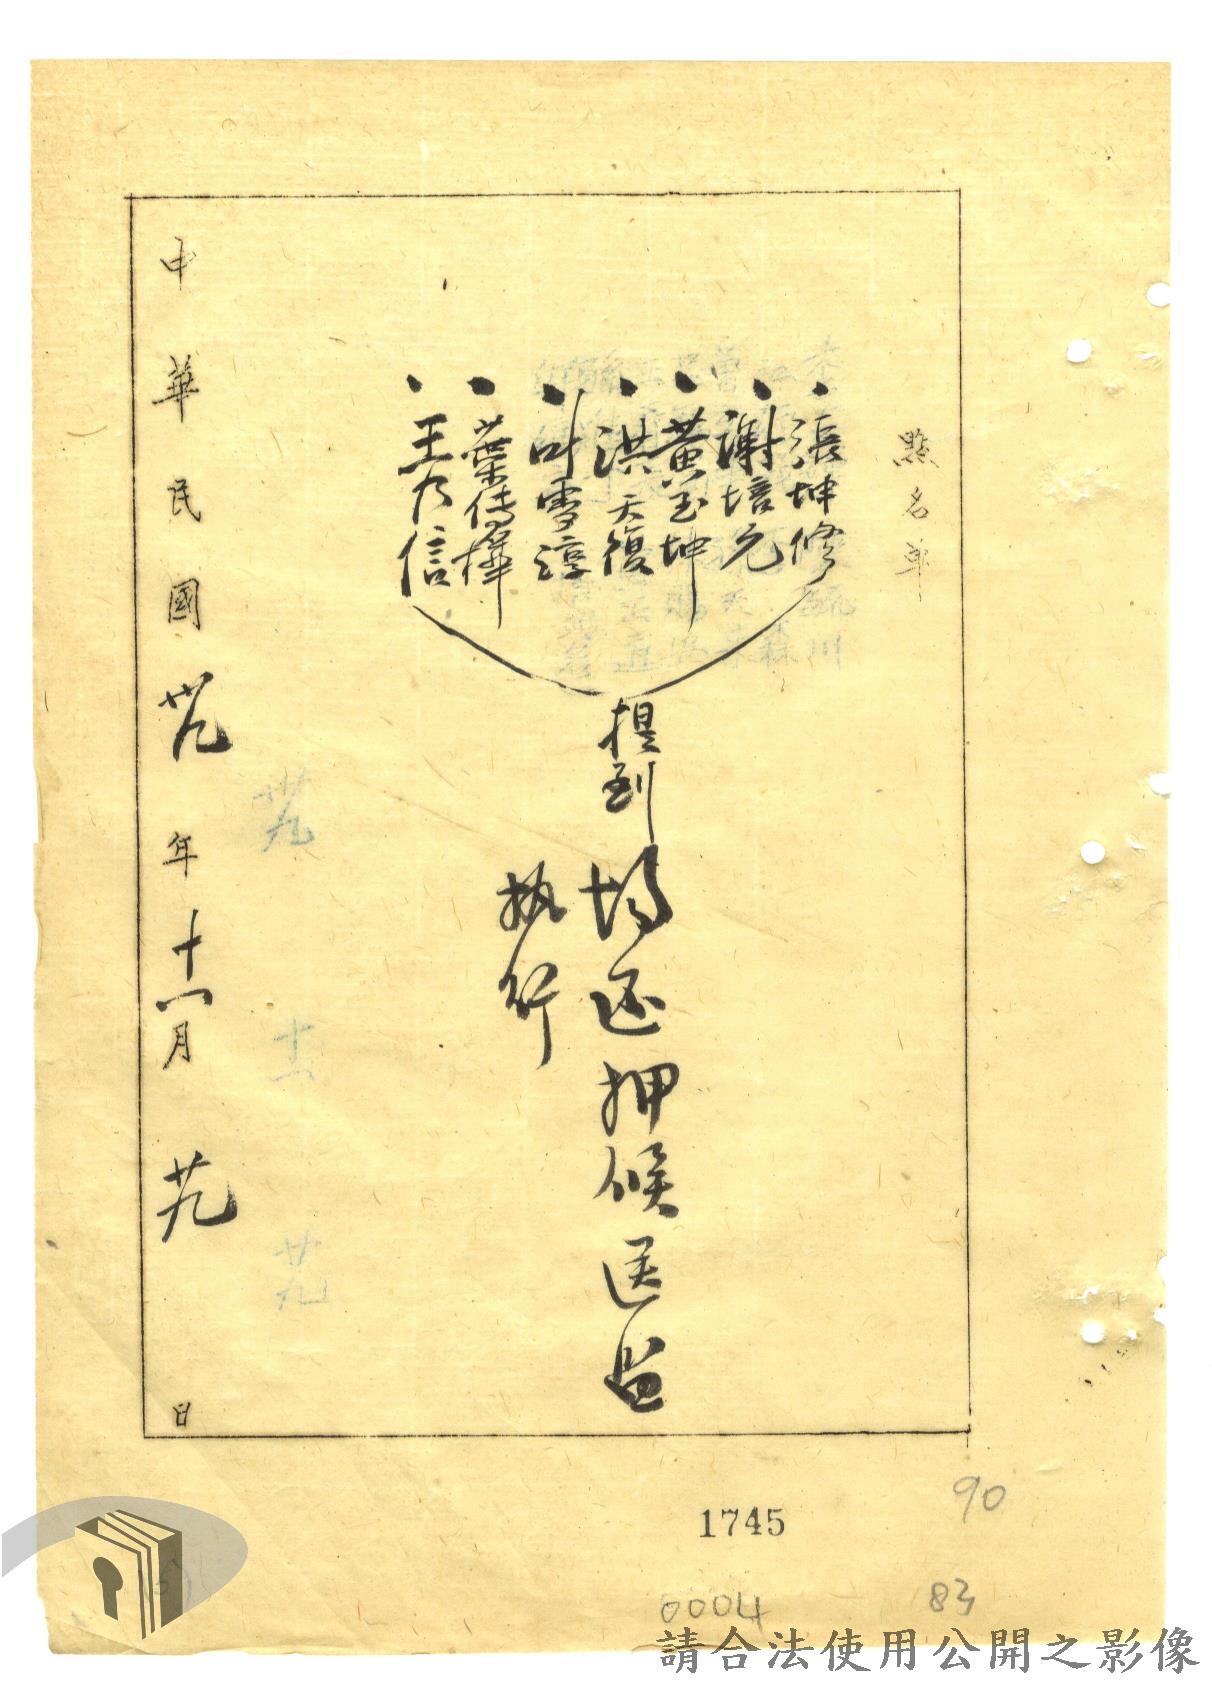 點名單
張坤修
謝培元
黃玉坤
洪天復
叶雪淳
葉傳樺
王乃信
提到均還押候送監
執行
中華民國卅九年十一月廿九日
卅九
十一
廿九
90
1745
0004
83
請合法使用公開之影像